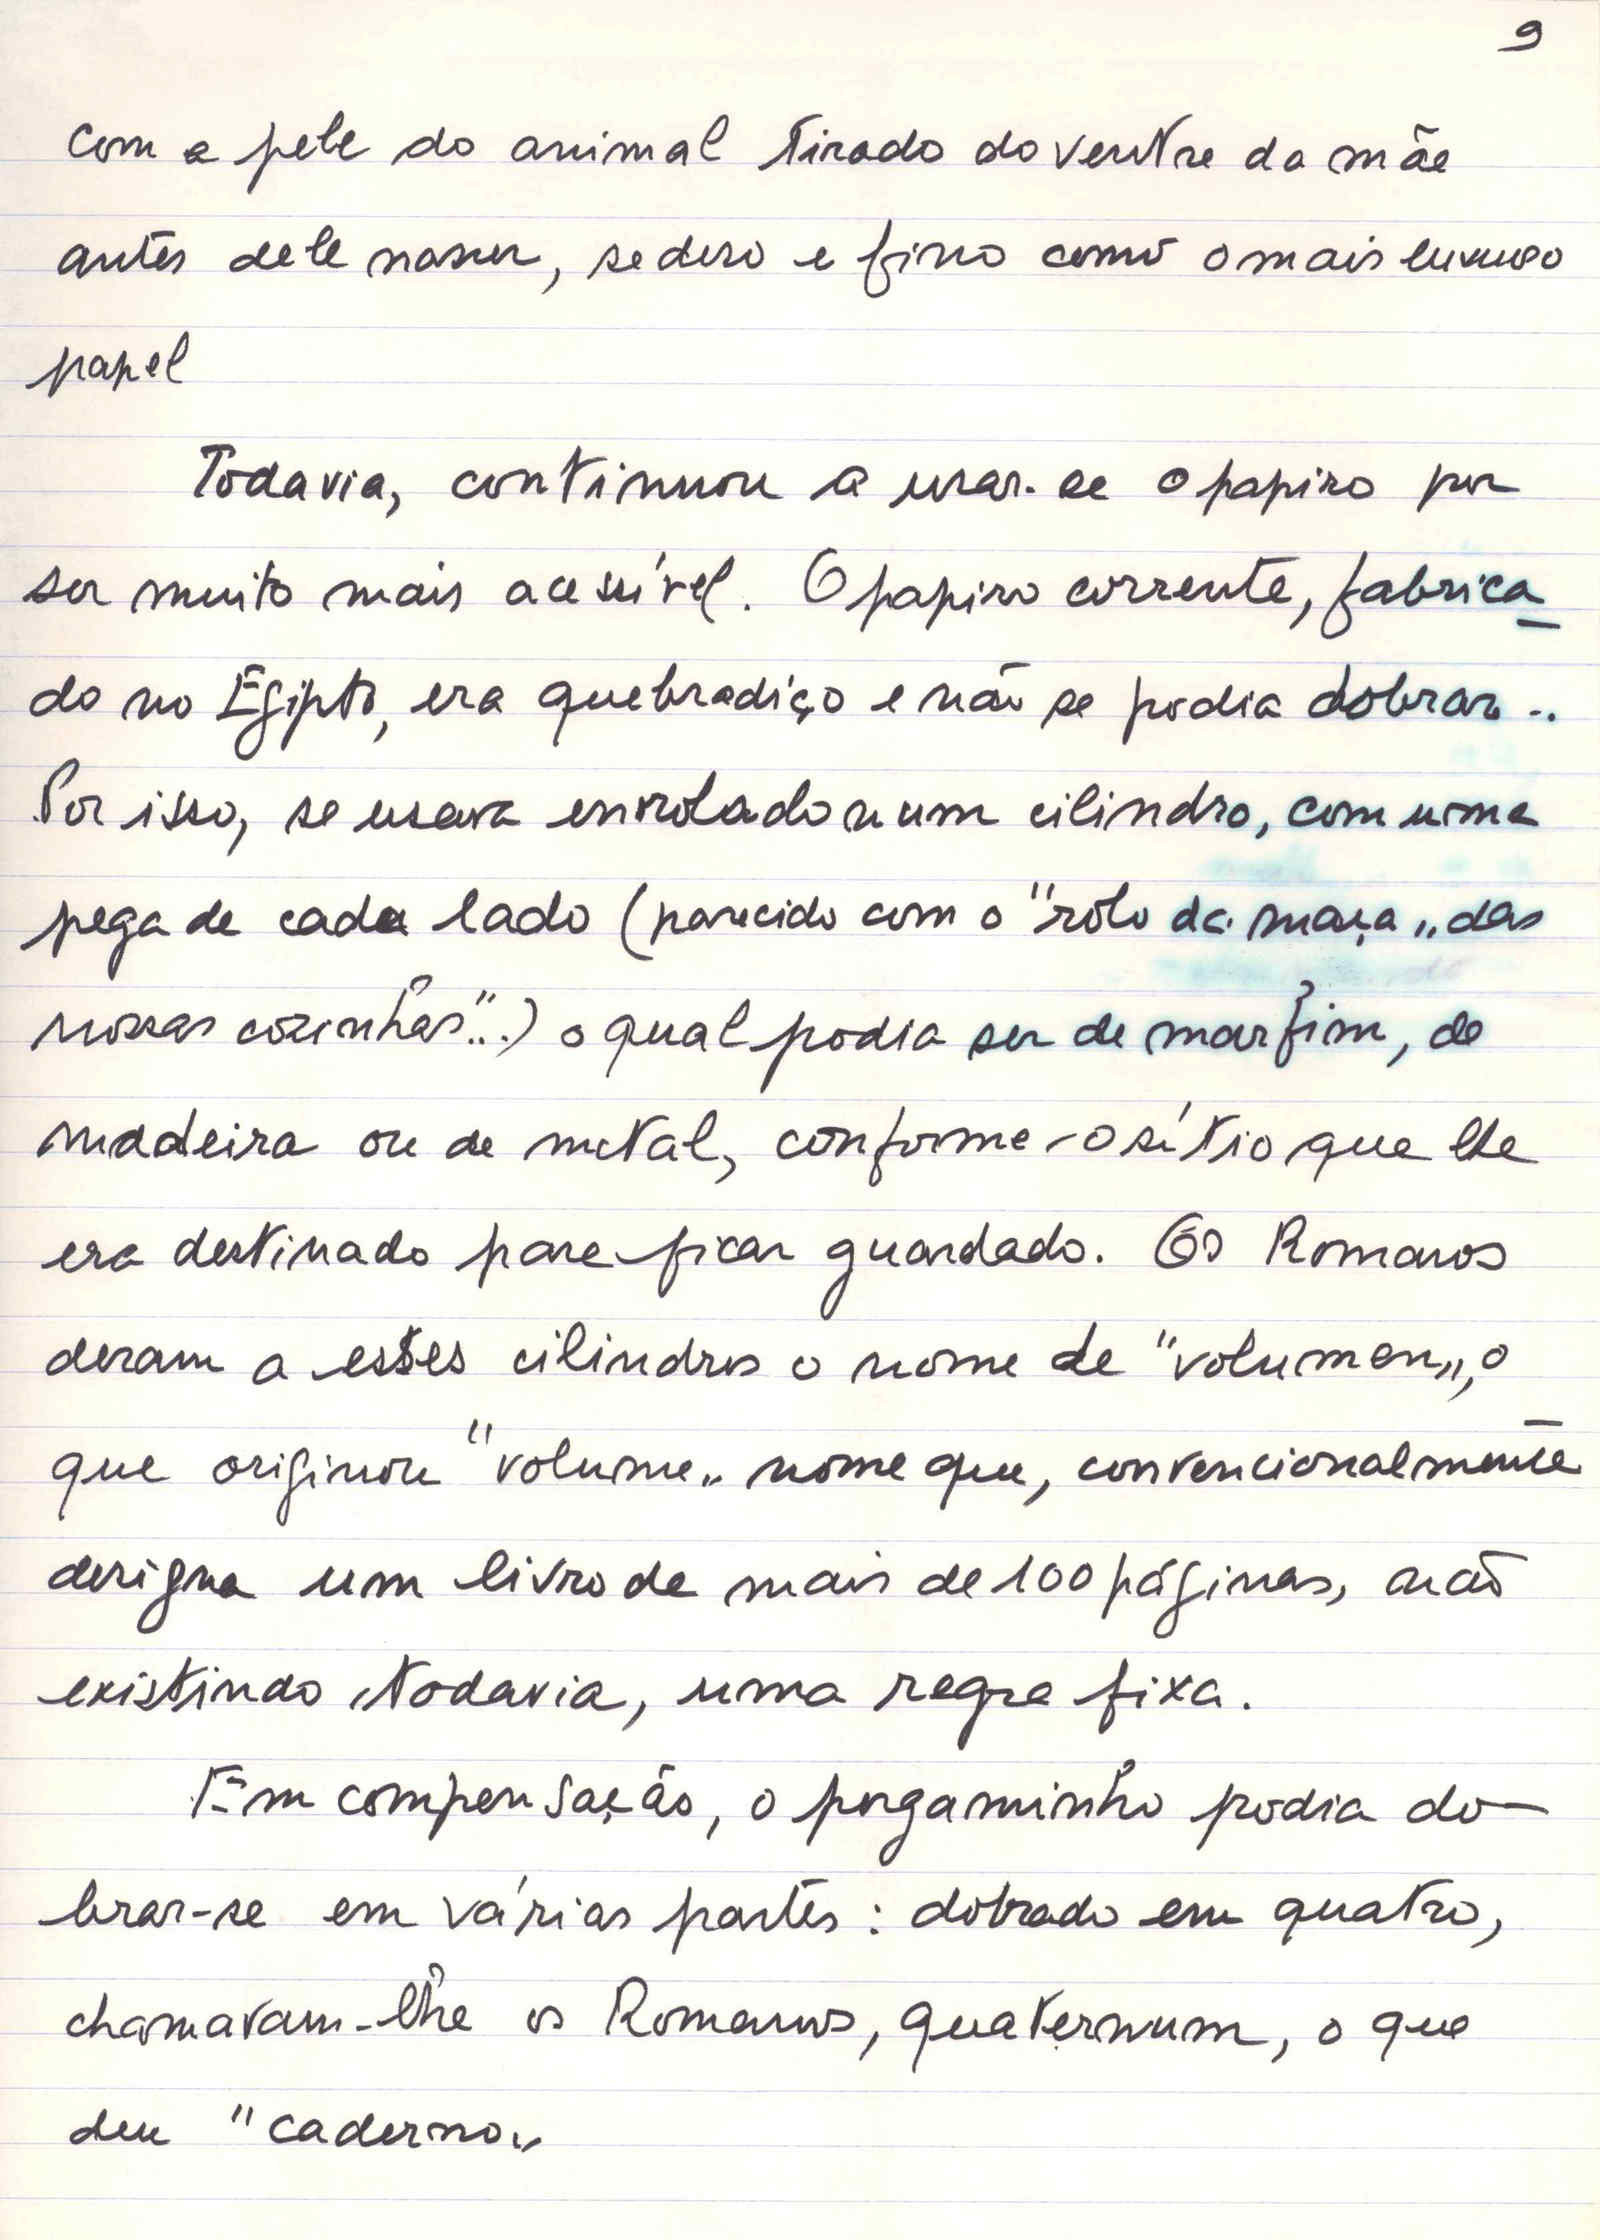 9
com a pele do animal tirado do ventre da mãe
antes dele nascer, sedoso e fino como o mais luxuoso
papel
Todavia, continuou a usar-se o papiro por
ser muito mais acessível. O papiro corrente, fabrica-
do no Egipto, era quebradiço e não se podia dobrar...
Por isso, se usava enrolado num cilindro, com uma
pega de cada lado (parecido com o "rolo da massa" das
nossas cozinhas"...) o qual podia ser de marfim, de
madeira ou de metal, conforme o sítio que lhe
era destinado para ficar guardado. Os Romanos
deram a esses cilindros o nome de "volumen", o
que originou "volume" nome que, convencionalmente
designa um livro de mais de 100 páginas, não
existindo todavia, uma regra fixa.
Em compensação, o pergaminho podia do-
brar-se em várias partes: dobrado em quatro,
chamavam-lhe os Romanos, quaternum, o que
deu "caderno"